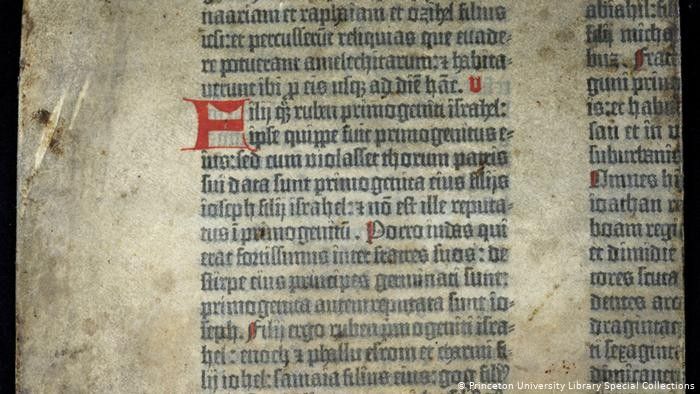 naariam et raphaiam et ozihel filius
iesi: et percusserūt reliquias que euade-
re potuerant amelechitarum: ⁊ habita-
uerunt ibi ꝓ eis usqꝫ ad diē hāc. U
Filij qꝫ ruben primogeniti israhel:
ipse quippe fuit primogenitus e-
ius: sed cum violasset thorum patris
sui data sunt primogenita eius filijs
ioseph filij israhel: ⁊ nō est ille reputa-
tus ī primogenitū. Porro iudas qui
erat fortissimus inter fratres suos: de
stirpe eius principes germinati sunt:
primogenita autem reputata sunt io-
seph. Filij ergo ruben pmogeniti isra-
hel: enoch ⁊ phallu esrom et charmi fi-
lij iohel: samaia filius eius: gog filiꝰ
abiahil: fil
filij micha
buz. Frat
guni prin
is: et habi
san et in v
suburbani
Omnes hi
ioathan r
boam regi
et dimidie
tores scuta
dentes arc
draginta
ti sexagint
dimicaner
© Princeton University Library Special Collections